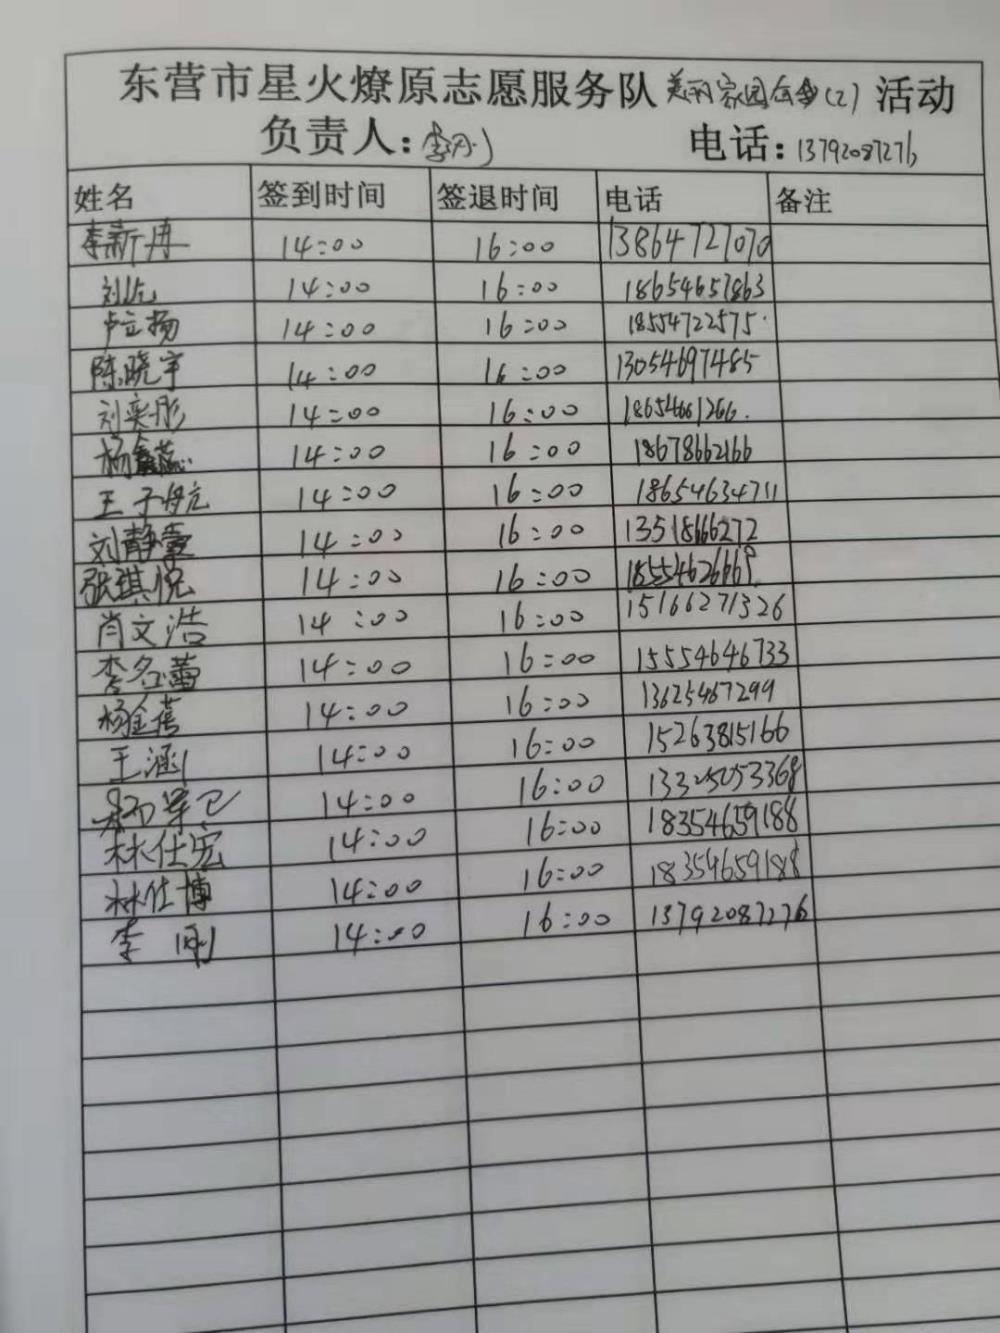 东营市星火燎原志愿服务队美丽家园(2)活动
负责人：李刚 电话：13792087276
姓名 签到时间 签退时间 电话 备注
李新冉 14:00 16:00 13864727070
刘 14:00 16:00 18654657863
卢立扬 14:00 16:00 18554722575
陈晓宇 14:00 16:00 13054697485
刘奕彤 14:00 16:00 18654661266
杨鑫蕊 14:00 16:00 18678662166
王子航 14:00 16:00 18654634711
刘静 14:00 16:00 13518666272
张琪悦 14:00 16:00 18554626669
肖文浩 14:00 16:00 15166271326
李名蕾 14:00 16:00 15554646733
杨金蓓 14:00 16:00 13625467299
王涵 14:00 16:00 15263815166
14:00 16:00 13325053368
林仕宏 14:00 16:00 18354659188
林仕博 14:00 16:00 18354659188
李刚 14:00 16:00 13792087276